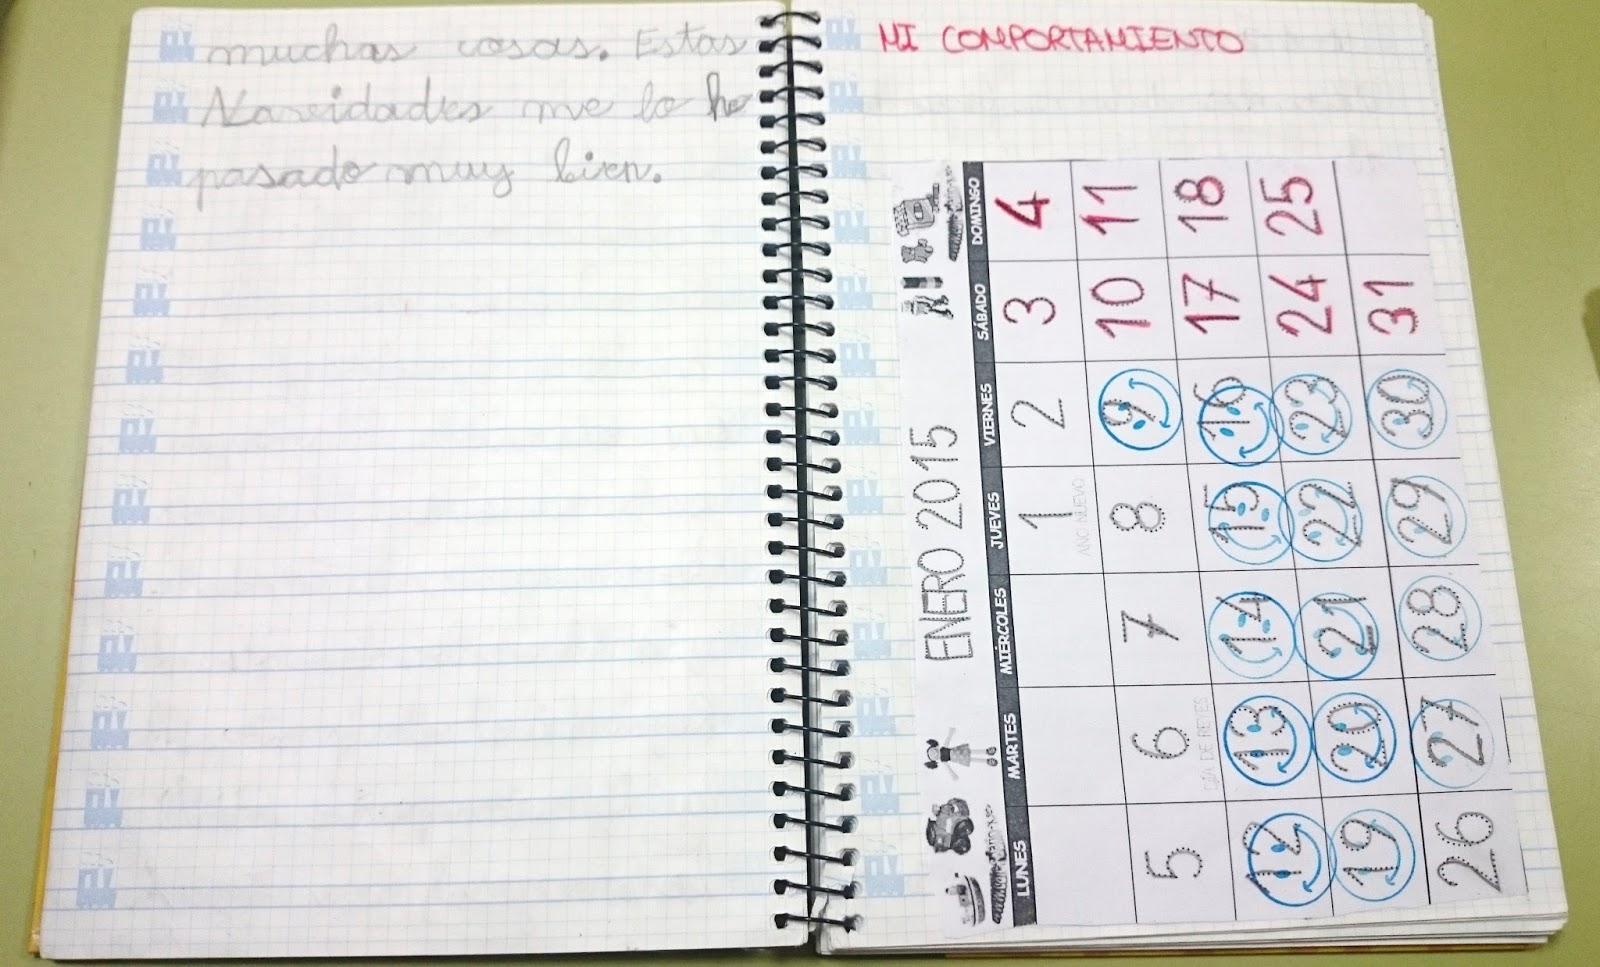 muchas cosas. Estas
Navidades me lo he
pasado muy bien.
MI COMPORTAMIENTO
ENERO 2015
LUNES MARTES MIÉRCOLES JUEVES VIERNES SÁBADO DOMINGO
1 2 3 4
AÑO NUEVO
5 6 7 8 9 10 11
DÍA DE REYES
12 13 14 15 16 17 18
19 20 21 22 23 24 25
26 27 28 29 30 31